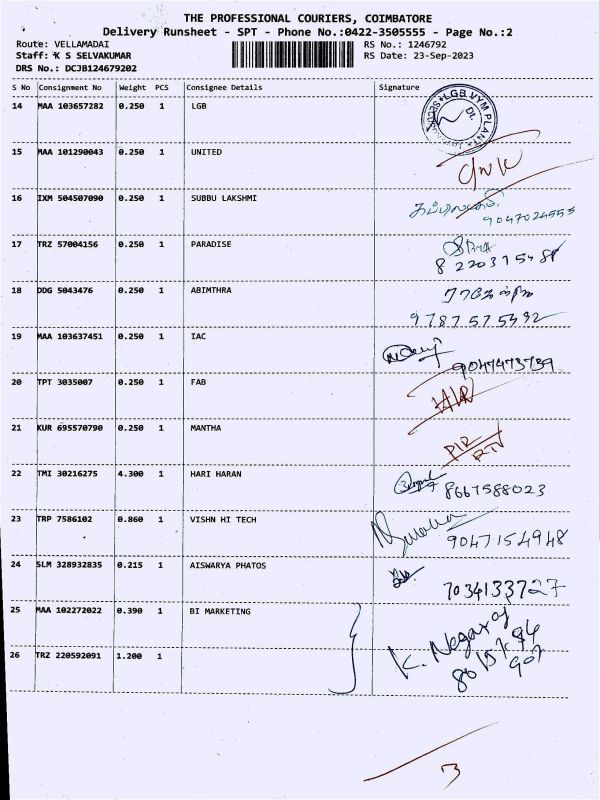 THE PROFESSIONAL COURIERS, COIMBATORE
Delivery Runsheet - SPT - Phone No.:0422-3505555 - Page No.:2
Route: VELLAMADAI RS No.: 1246792
Staff: K S SELVAKUMAR RS Date: 23-Sep-2023
DRS No.: DCJB124679202
S No Consignment No Weight PCS Consignee Details Signature
14 MAA 103657282 0.250 1 LGB
LGB VYM PLANT
15 MAA 101290043 0.250 1 UNITED
16 IXM 504507090 0.250 1 SUBBU LAKSHMI
9047024555
17 TRZ 57004156 0.250 1 PARADISE
18 DDG 5043476 0.250 1 ABIMTHRA
9787575592
19 MAA 103637451 0.250 1 IAC
9047473739
20 TPT 3035007 0.250 1 FAB
21 KUR 695570790 0.250 1 MANTHA
22 TMI 30216275 4.300 1 HARI HARAN
8667588023
23 TRP 7586102 0.860 1 VISHN HI TECH
9047154948
24 SLM 328932835 0.215 1 AISWARYA PHATOS
7034133727
25 MAA 102272022 0.390 1 BI MARKETING
K. Nagaraj
26 TRZ 220592091 1.200 1
3